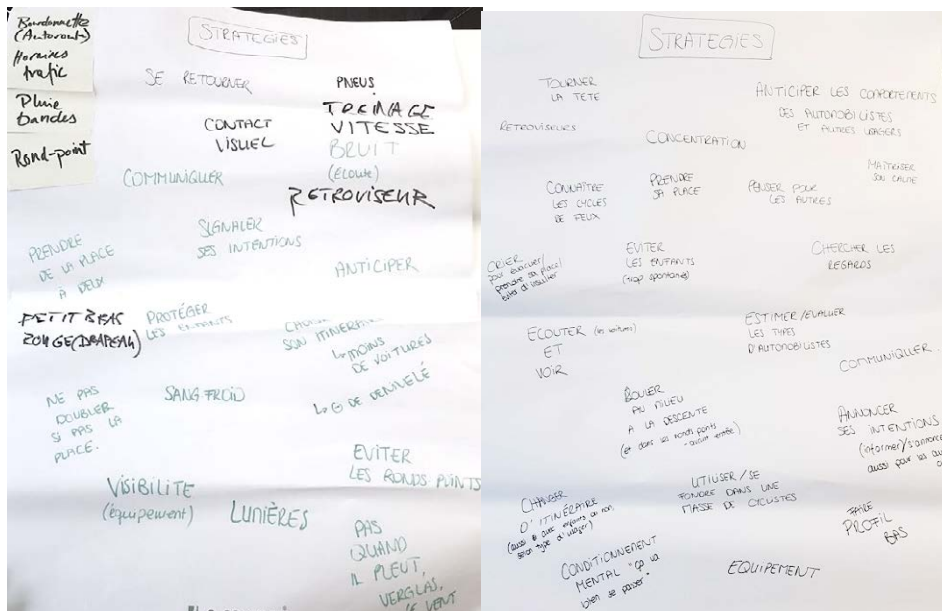 Bourdonnette
(Autoroute)
Horaires
trafic
Pluie
bandes
Rond-point
STRATEGIES
SE RETOURNER
PNEUS
FREINAGE
VITESSE
CONTACT
VISUEL
BRUIT
(écoute)
COMMUNIQUER
RETROVISEUR
SIGNALER
SES INTENTIONS
PRENDRE
DE LA PLACE
À DEUX
ANTICIPER
PETIT BRAS
ROUGE (DRAPEAU)
PROTÉGER
LES ENFANTS
SON ITINERAIRE
↳ MOINS
DE VOITURES
↳ ⊖ DE DENIVELÉ
NE PAS
DOUBLER
SI PAS LA
PLACE.
SANG FROID
EVITER
LES RONDS POINTS
VISIBILITE
(équipement)
LUMIÈRES
PAS
QUAND
IL PLEUT,
VERGLAS,
VENT
STRATEGIES
TOURNER
LA TETE
ANTICIPER LES COMPORTEMENTS
DES AUTOMOBILISTES
ET AUTRES USAGERS
RETROVISEURS
CONCENTRATION
MAITRISER
SON CALME
CONNAÎTRE
LES CYCLES
DE FEUX
PRENDRE
SA PLACE
PENSER POUR
LES AUTRES
CRIER
pour évacuer/
prendre sa place/
éviter d'insulter
EVITER
LES ENFANTS
(trop spontanés)
CHERCHER LES
REGARDS
ECOUTER (les voitures)
ET
VOIR
ESTIMER/EVALUER
LES TYPES
D'AUTOMOBILISTES
COMMUNIQUER
ROULER
AU MILIEU
A LA DESCENTE
(et dans les ronds points
ANNONCER
SES INTENTIONS
(informer)/s'annoncer
aussi pour les
CHANGER
D'ITINÉRAIRE
(aussi avec enfants ou non
selon type d'usager)
UTILISER/SE
FONDRE DANS UNE
MASSE DE CYCLISTES
FAIRE
PROFIL
BAS
CONDITIONNEMENT
MENTAL "ça va
bien se passer"
EQUIPEMENT